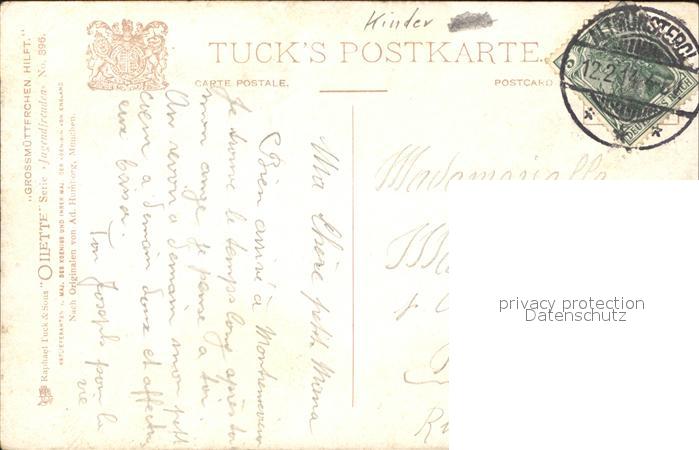 Kinder
TUCK'S POSTKARTE.
CARTE POSTALE.
POSTCARD
ALTMÜNSTEROL
12.2.14
DEUTSCHES REICH
„GROSSMÜTTERCHEN HILFT."
Raphael Tuck & Sons' "OILETTE" Serie »Jugendfreuden« No. 896.
HOFLIEFERANTEN I. MAJ. DES KOENIGS UND IHRER MAJ. DER KOENIGIN VON ENGLAND
Nach Originalen von Ad. Humborg, München.
Ma Chère petite Mona
Bien arrivé à
Je trouve le temps long après toi
mon ange je pense à toi.
Au revoir à demain mon petit
cien a demain doux et
eux baiser.
Ton Joseph pour la
vie
Mademoiselle
privacy protection
Datenschutz